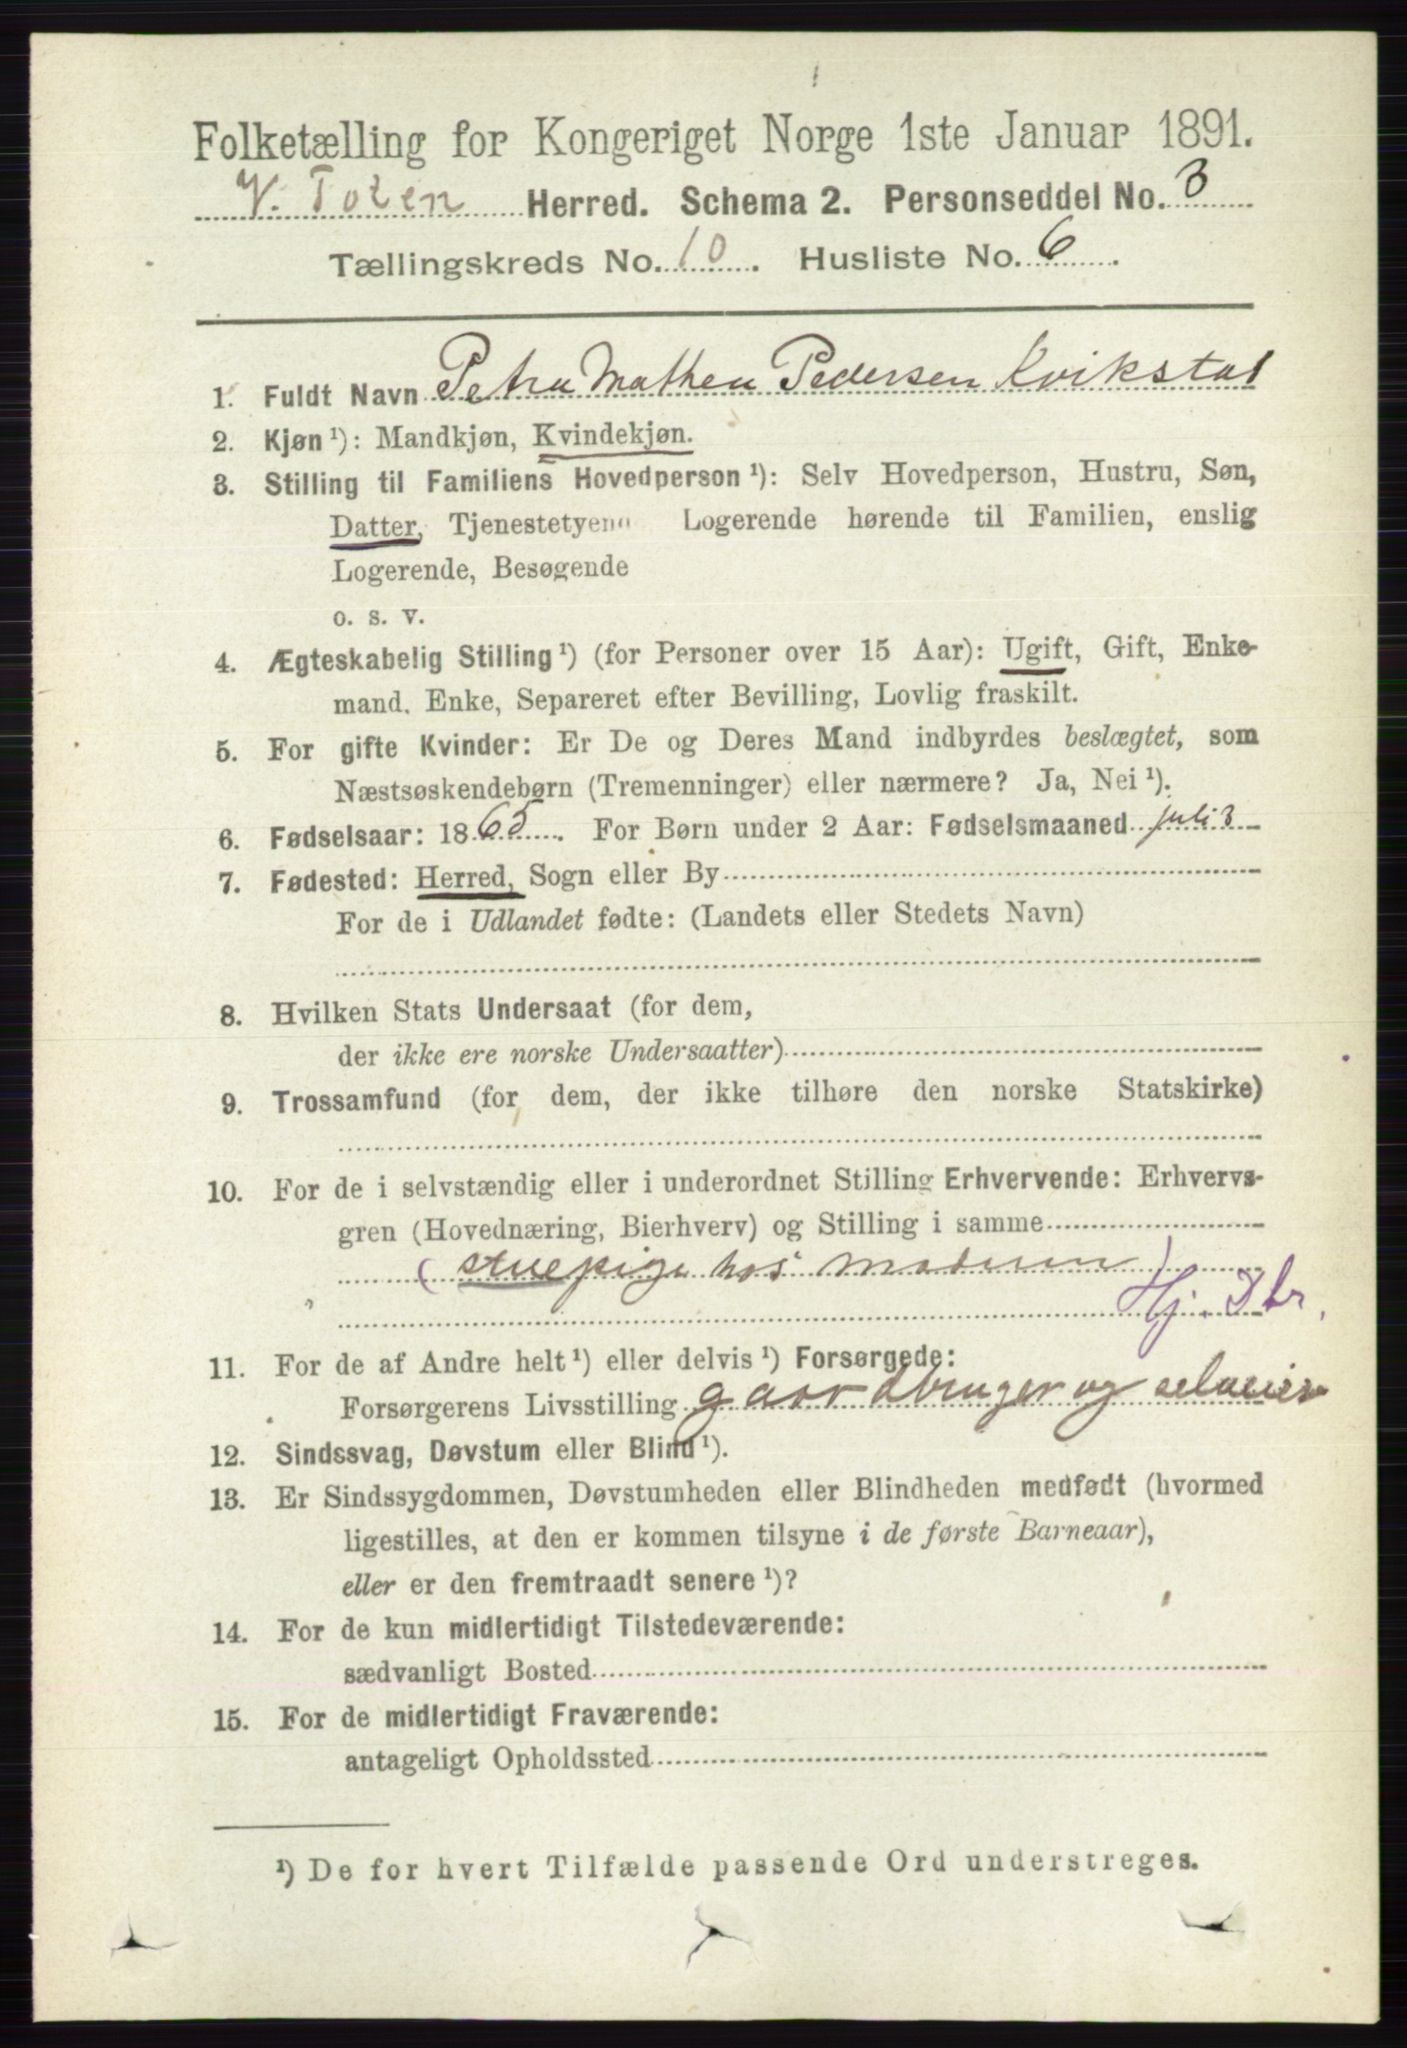 Folketælling for Kongeriget Norge 1ste Januar 1891.
V. Toten Herred. Schema 2. Personseddel No. 3
Tællingskreds No. 10. Husliste No. 6.
1. Fuldt Navn Petra Mathea Pedersen Kvikstad
2. Kjøn ¹): Mandkjøn, Kvindekjøn.
3. Stilling til Familiens Hovedperson ¹): Selv Hovedperson, Hustru, Søn,
Datter, Tjenestetyend Logerende hørende til Familien, enslig
Logerende, Besøgende
o. s. v.
4. Ægteskabelig Stilling ¹) (for Personer over 15 Aar): Ugift, Gift, Enke-
mand. Enke, Separeret efter Bevilling, Lovlig fraskilt.
5. For gifte Kvinder: Er De og Deres Mand indbyrdes beslægtet, som
Næstsøskendebørn (Tremenninger) eller nærmere? Ja, Nei ¹).
6. Fødselsaar: 1865. For Børn under 2 Aar: Fødselsmaaned juli 3
7. Fødested: Herred, Sogn eller By
For de i Udlandet fødte: (Landets eller Stedets Navn)
8. Hvilken Stats Undersaat (for dem,
der ikke ere norske Undersaatter)
9. Trossamfund (for dem, der ikke tilhøre den norske Statskirke)
10. For de i selvstændig eller i underordnet Stilling Erhvervende: Erhvervs-
gren (Hovednæring, Bierhverv) og Stilling i samme
(stuepige hos moderen)
Hj. Dtr.
11. For de af Andre helt ¹) eller delvis ¹) Forsørgede:
Forsørgerens Livsstilling gaardbruger og selveier
12. Sindssvag, Døvstum eller Blind ¹).
13. Er Sindssygdommen, Døvstumheden eller Blindheden medfødt (hvormed
ligestilles, at den er kommen tilsyne i de første Barneaar),
eller er den fremtraadt senere ¹)?
14. For de kun midlertidigt Tilstedeværende:
sædvanligt Bosted
15. For de midlertidigt Fraværende:
antageligt Opholdssted
¹) De for hvert Tilfælde passende Ord understreges.